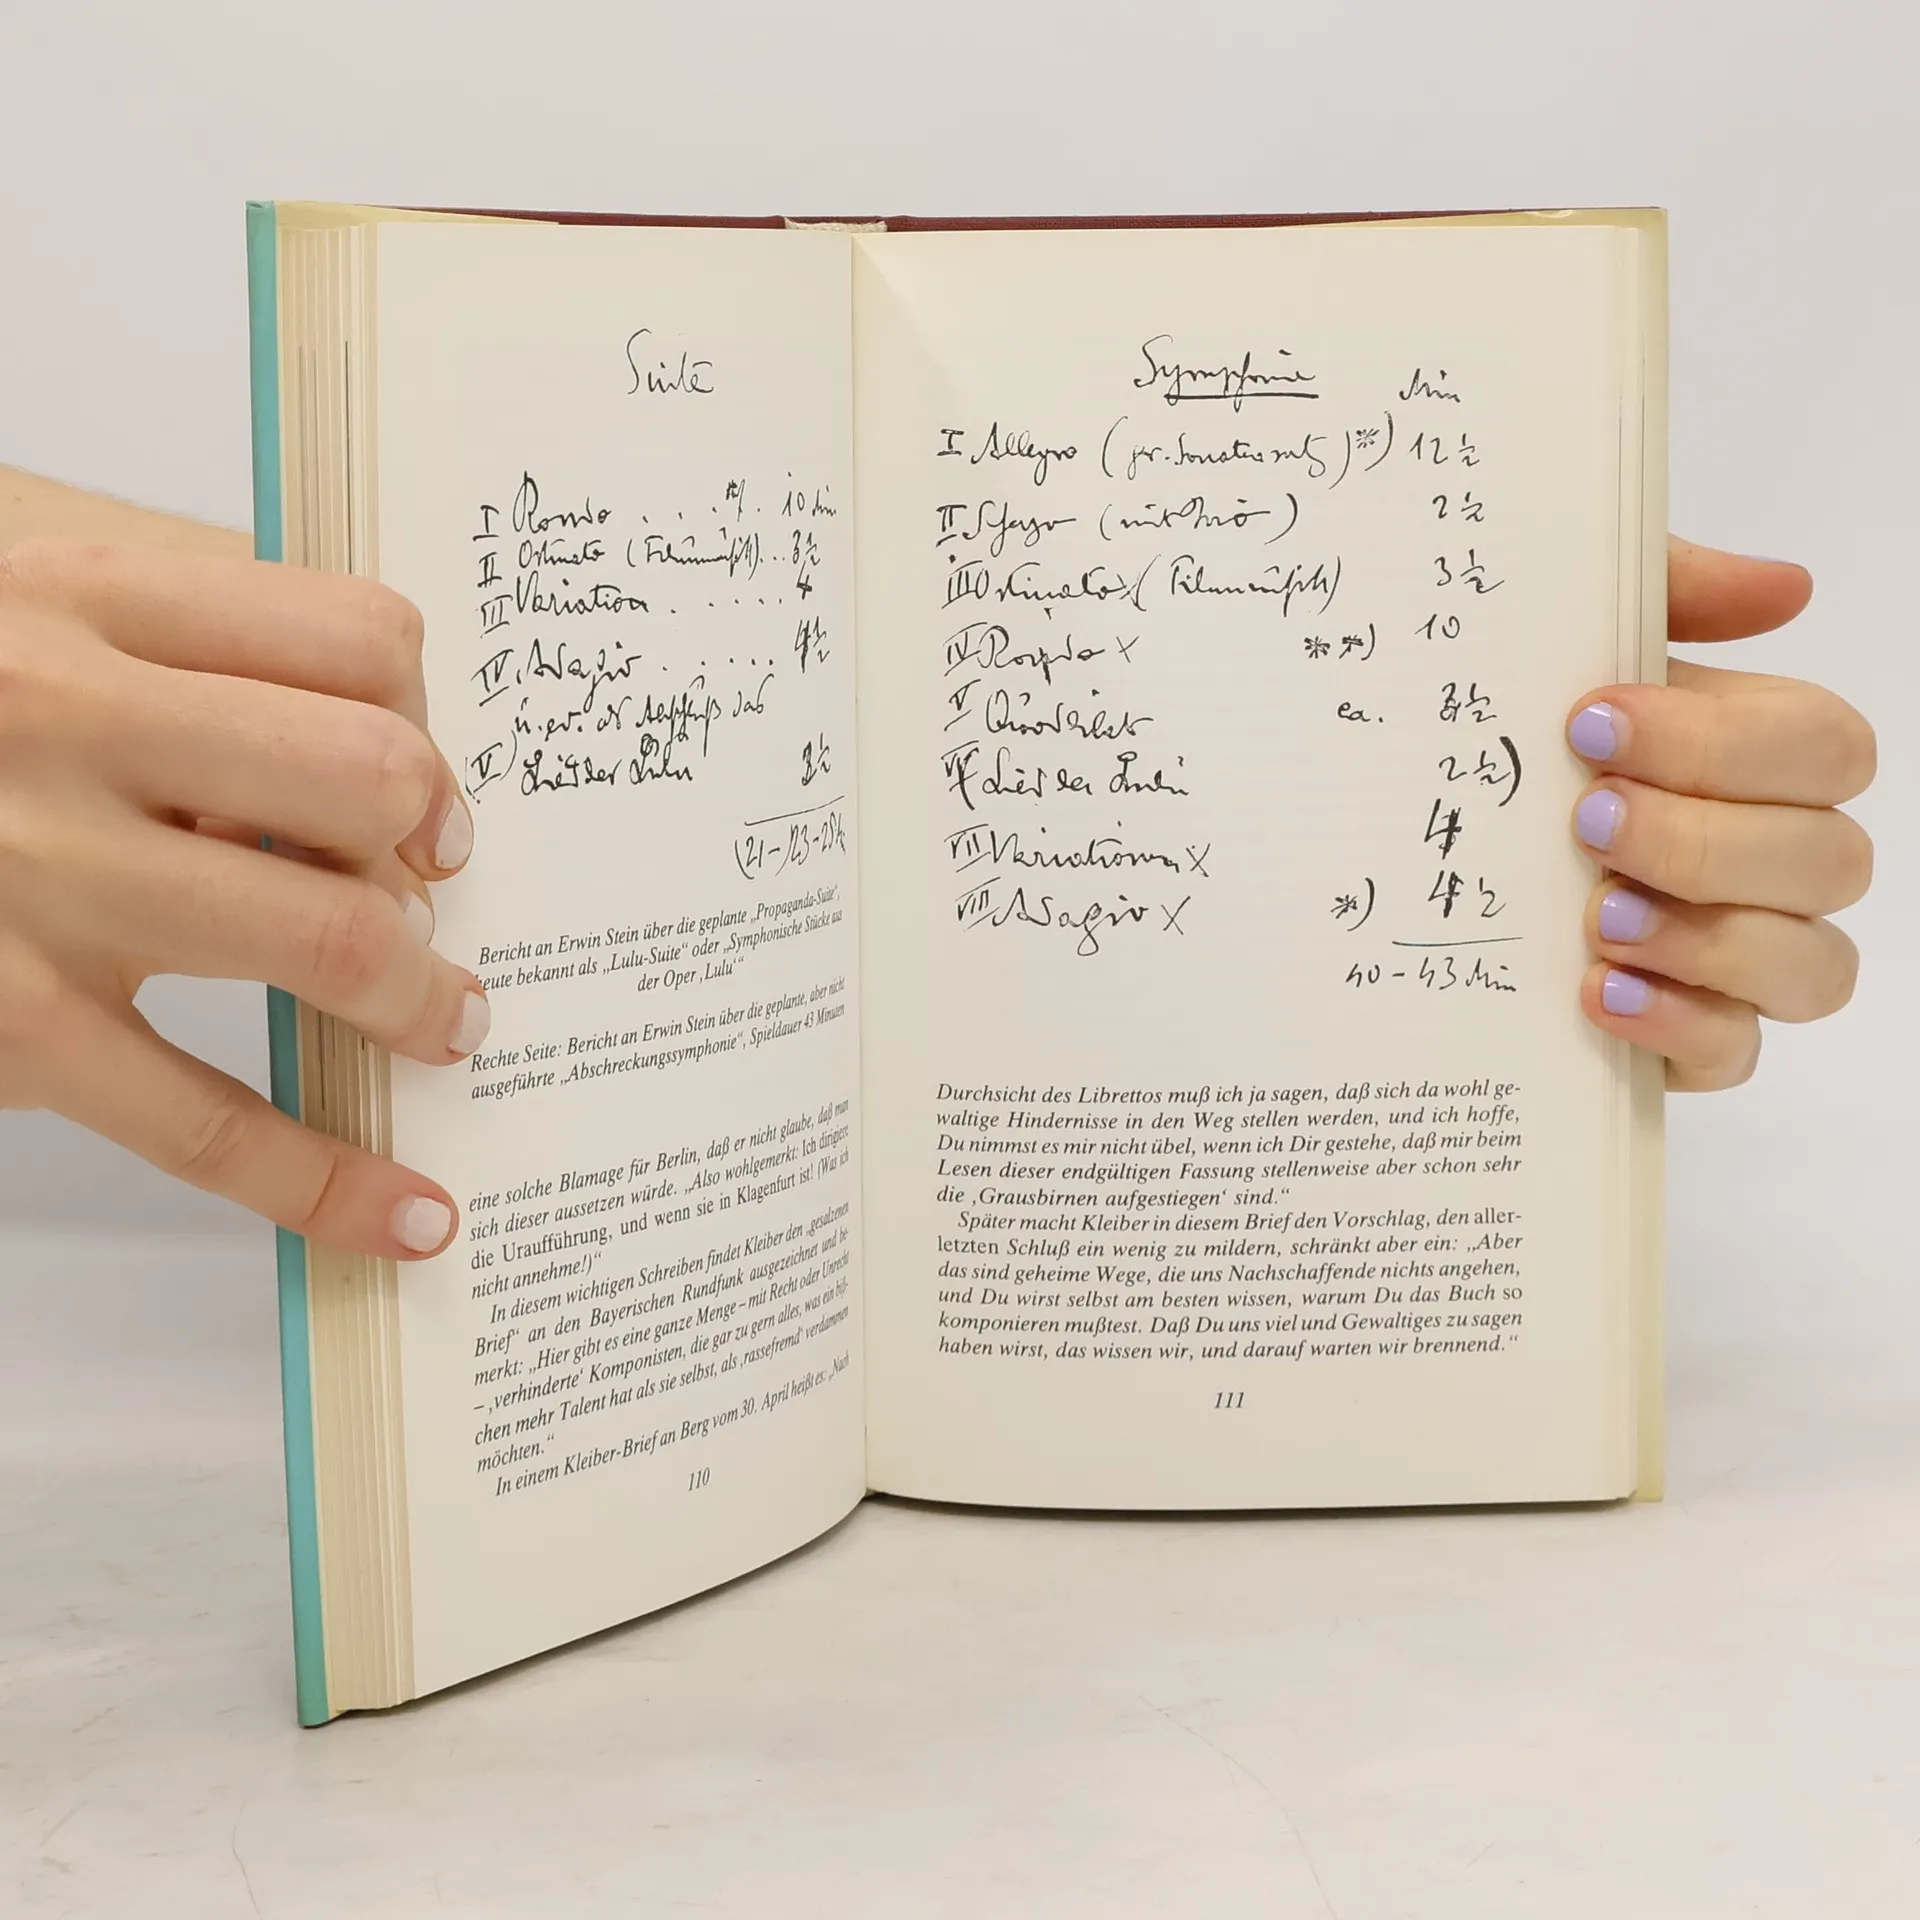 Suite
I Rondo . . . *) . 10 Min
II Ostinato (Filmmusik) . . 3½
III Variation . . . . . 4
IV. Adagio . . . . . . 4½
u. ev. als Abschluß das
(V) Lied der Lulu 2½
(21-)23-25½
Bericht an Erwin Stein über die geplante „Propaganda-Suite“,
heute bekannt als „Lulu-Suite“ oder „Symphonische Stücke aus
der Oper ‚Lulu‘“
Rechte Seite: Bericht an Erwin Stein über die geplante, aber nicht
ausgeführte „Abschreckungssymphonie“, Spieldauer 43 Minuten
eine solche Blamage für Berlin, daß er nicht glaube, daß man
sich dieser aussetzen würde. „Also wohlgemerkt: Ich dirigiere
die Uraufführung, und wenn sie in Klagenfurt ist! (Was ich
nicht annehme!)“
In diesem wichtigen Schreiben findet Kleiber den „gesalzenen
Brief“ an den Bayerischen Rundfunk ausgezeichnet und be-
merkt: „Hier gibt es eine ganze Menge – mit Recht oder Unrecht
– ‚verhinderte‘ Komponisten, die gar zu gern alles, was ein biß-
chen mehr Talent hat als sie selbst, als ‚rassefremd‘ verdammen
möchten.“
In einem Kleiber-Brief an Berg vom 30. April heißt es: „Nach
110
Symphonie
Min
I Allegro (gr. Sonatensatz)*) 12½
II (mit Trio) 2½
III Ostinato x (Filmmusik) 3½
IV Rondo x **) 10
V Quodlibet ca. 3½
VI (Lied der Lulu 2½)
VII Variationen x 4
VIII Adagio x *) 4½
40-43 Min
Durchsicht des Librettos muß ich ja sagen, daß sich da wohl ge-
waltige Hindernisse in den Weg stellen werden, und ich hoffe,
Du nimmst es mir nicht übel, wenn ich Dir gestehe, daß mir beim
Lesen dieser endgültigen Fassung stellenweise aber schon sehr
die ‚Grausbirnen aufgestiegen‘ sind.“
Später macht Kleiber in diesem Brief den Vorschlag, den aller-
letzten Schluß ein wenig zu mildern, schränkt aber ein: „Aber
das sind geheime Wege, die uns Nachschaffende nichts angehen,
und Du wirst selbst am besten wissen, warum Du das Buch so
komponieren mußtest. Daß Du uns viel und Gewaltiges zu sagen
haben wirst, das wissen wir, und darauf warten wir brennend.“
111